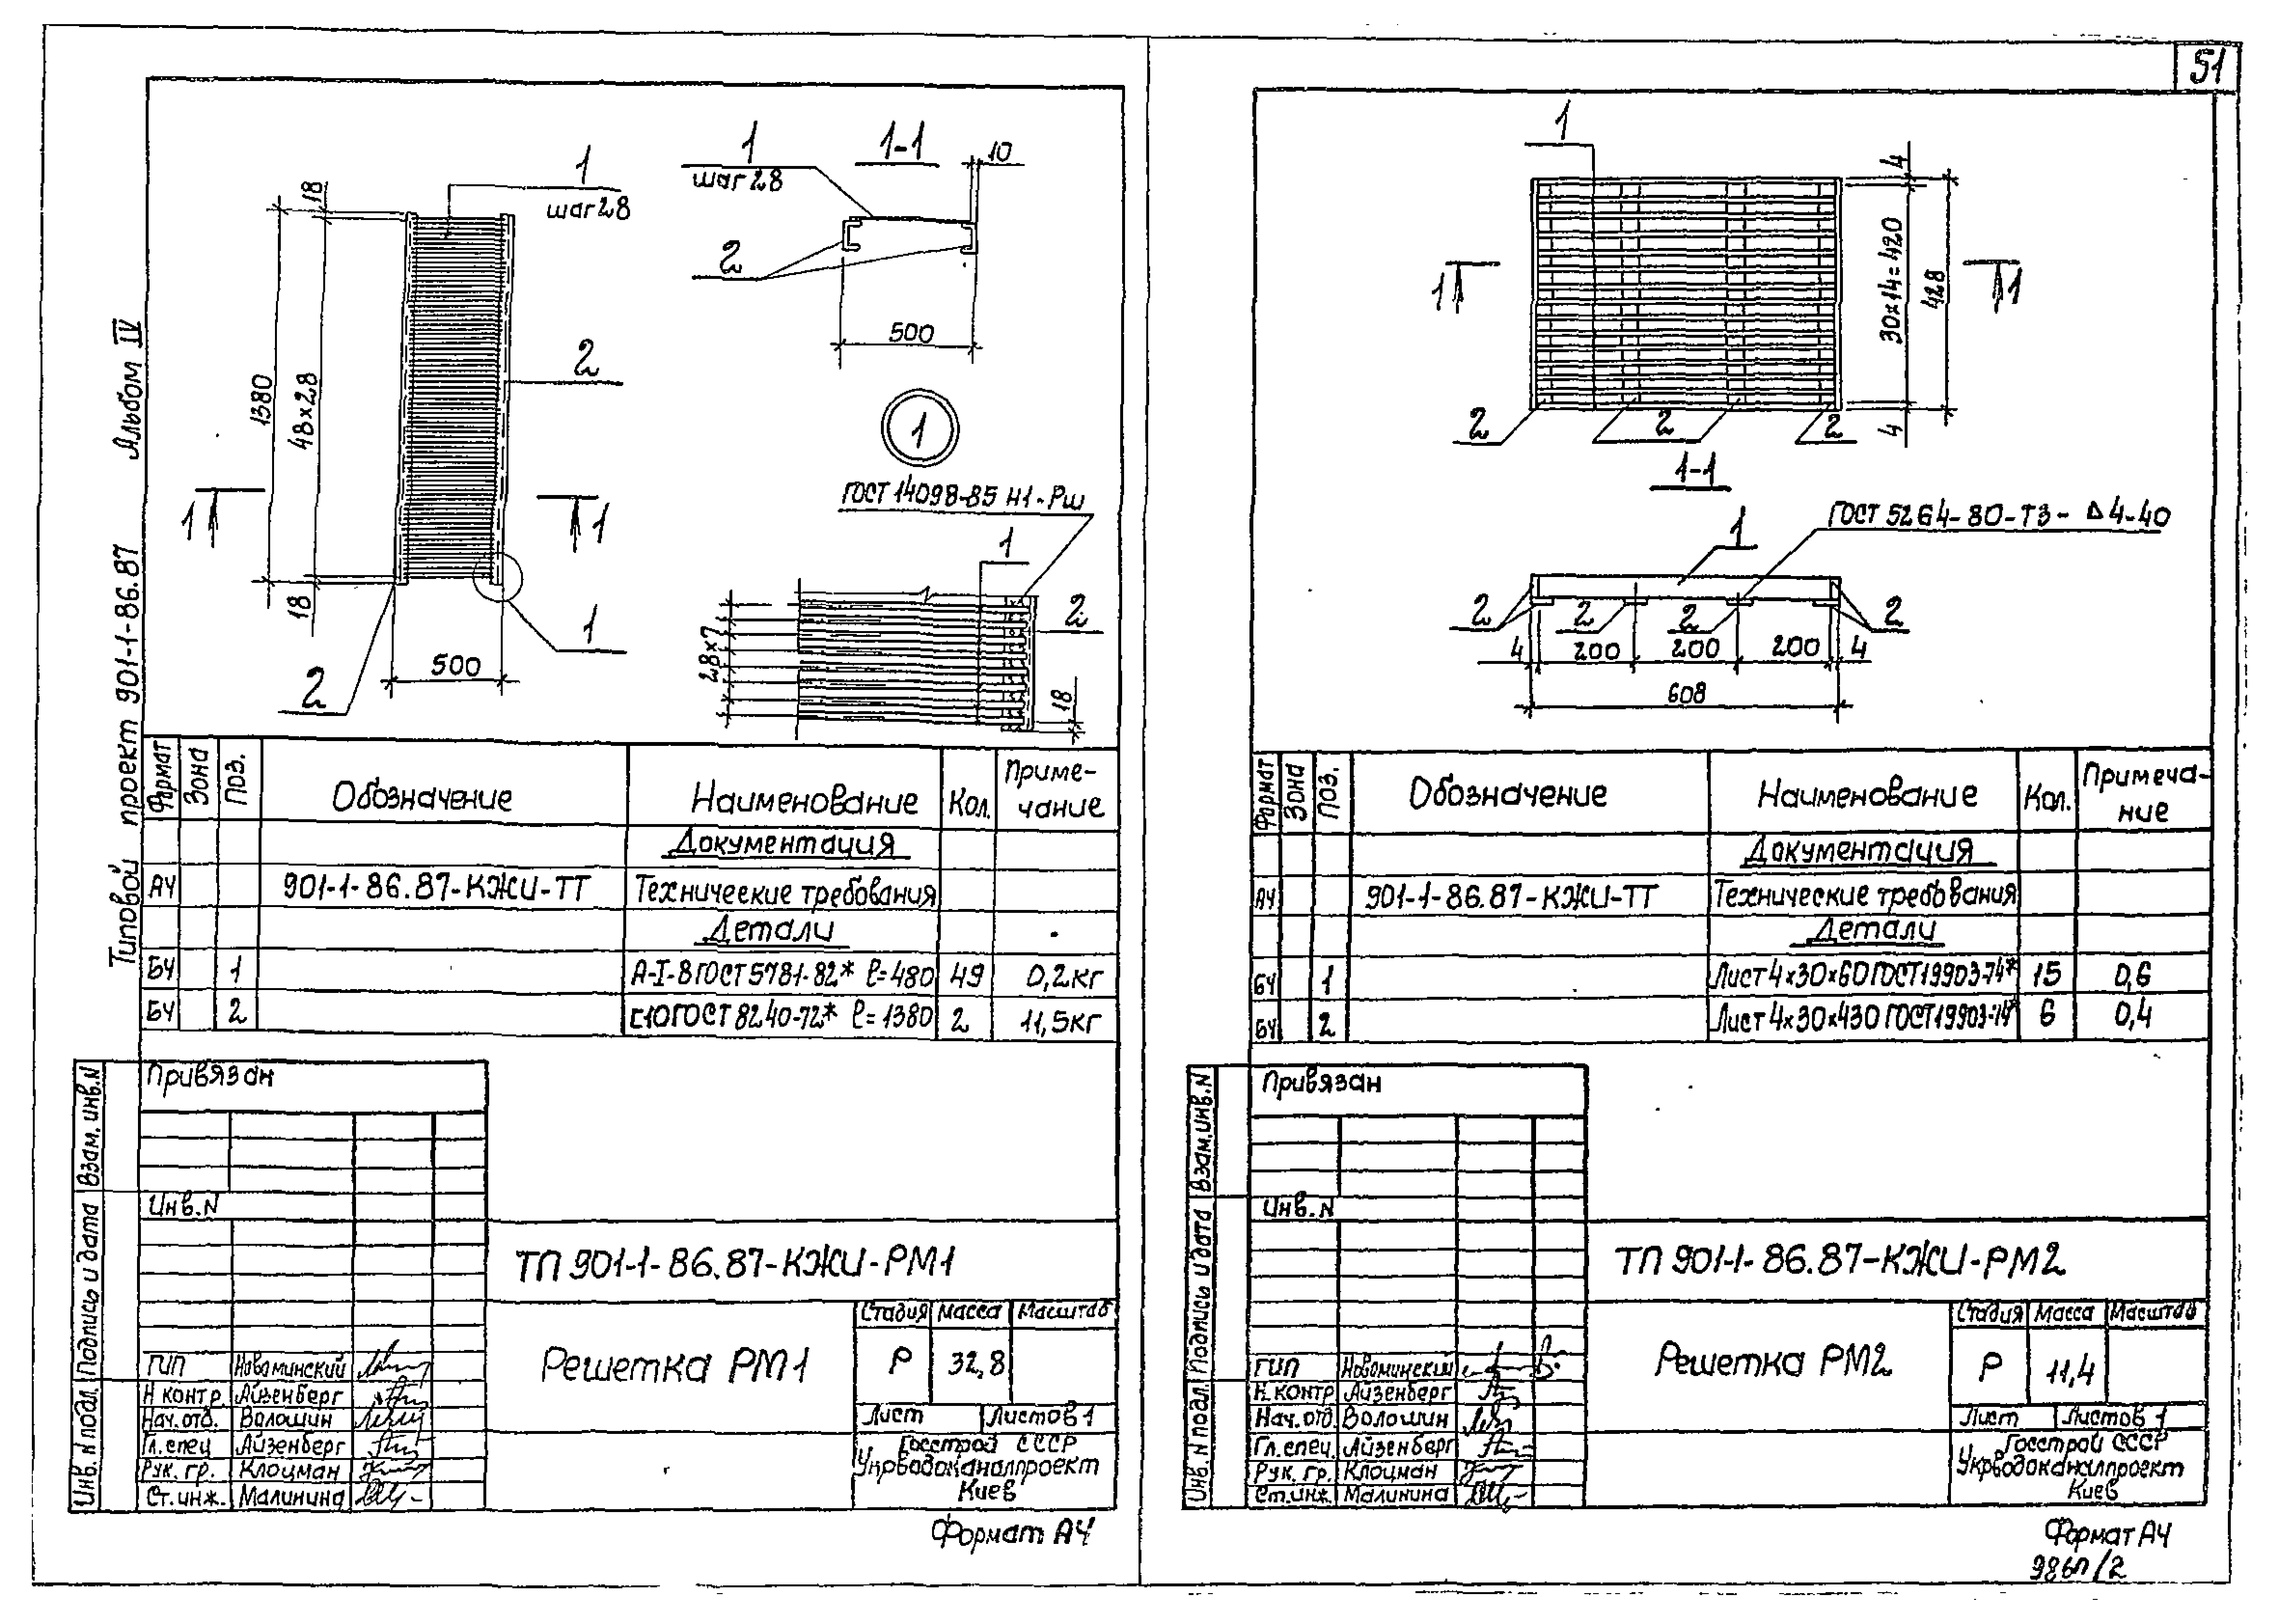 51
Типовой проект 901-1-86.87 Альбом IV
1
шаг 28
18
1380
48×28
18
2
1
1
1
2
500
1-1
1
шаг 28
10
2
500
1
ГОСТ 14098-85 Н1-Рш
1
2
28×7
18
Формат Зона Поз. Обозначение Наименование Кол. Приме-
чание
Документация
А4 901-1-86.87-КЖИ-ТТ Технические требования
Детали
БЧ 1 А-I-8 ГОСТ 5781-82* ℓ=480 49 0,2кг
БЧ 2 с10 ГОСТ 8240-72* ℓ=1380 2 11,5кг
Привязан
Инв.N
ТП 901-1-86.87-КЖИ-РМ1
Решетка РМ1
Стадия Масса Масштаб
Р 32,8
Лист Листов 1
Госстрой СССР
Укрводоканалпроект
Киев
ГИП Новоминский
Н.контр. Айзенберг
Нач.отд. Волошин
Гл.спец Айзенберг
Рук. гр. Клоцман
Ст.инж. Малинина
Инв. N подл. Подпись и дата Взам. инв.N
Формат А4
1
4
30×14=420
428
4
1
1
2
2
2
1-1
ГОСТ 5264-80-Т3-Δ4-40
1
2
2
2
2
4 200 200 200 4
608
Формат Зона Поз. Обозначение Наименование Кол. Примеча-
ние
Документация
А4 901-1-86.87-КЖИ-ТТ Технические требования
Детали
БЧ 1 Лист 4×30×60 ГОСТ 19903-74* 15 0,6
БЧ 2 Лист 4×30×430 ГОСТ 19903-74* 6 0,4
Привязан
Инв.N
ТП 901-1-86.87-КЖИ-РМ2
Решетка РМ2
Стадия Масса Масштаб
Р 11,4
Лист Листов 1
Госстрой СССР
Укрводоканалпроект
Киев
ГИП Новоминский
Н.контр Айзенберг
Нач.отд. Волошин
Гл.спец. Айзенберг
Рук. гр. Клоцман
Ст.инж. Малинина
Инв. N подл. Подпись и дата Взам.инв.N
Формат А4